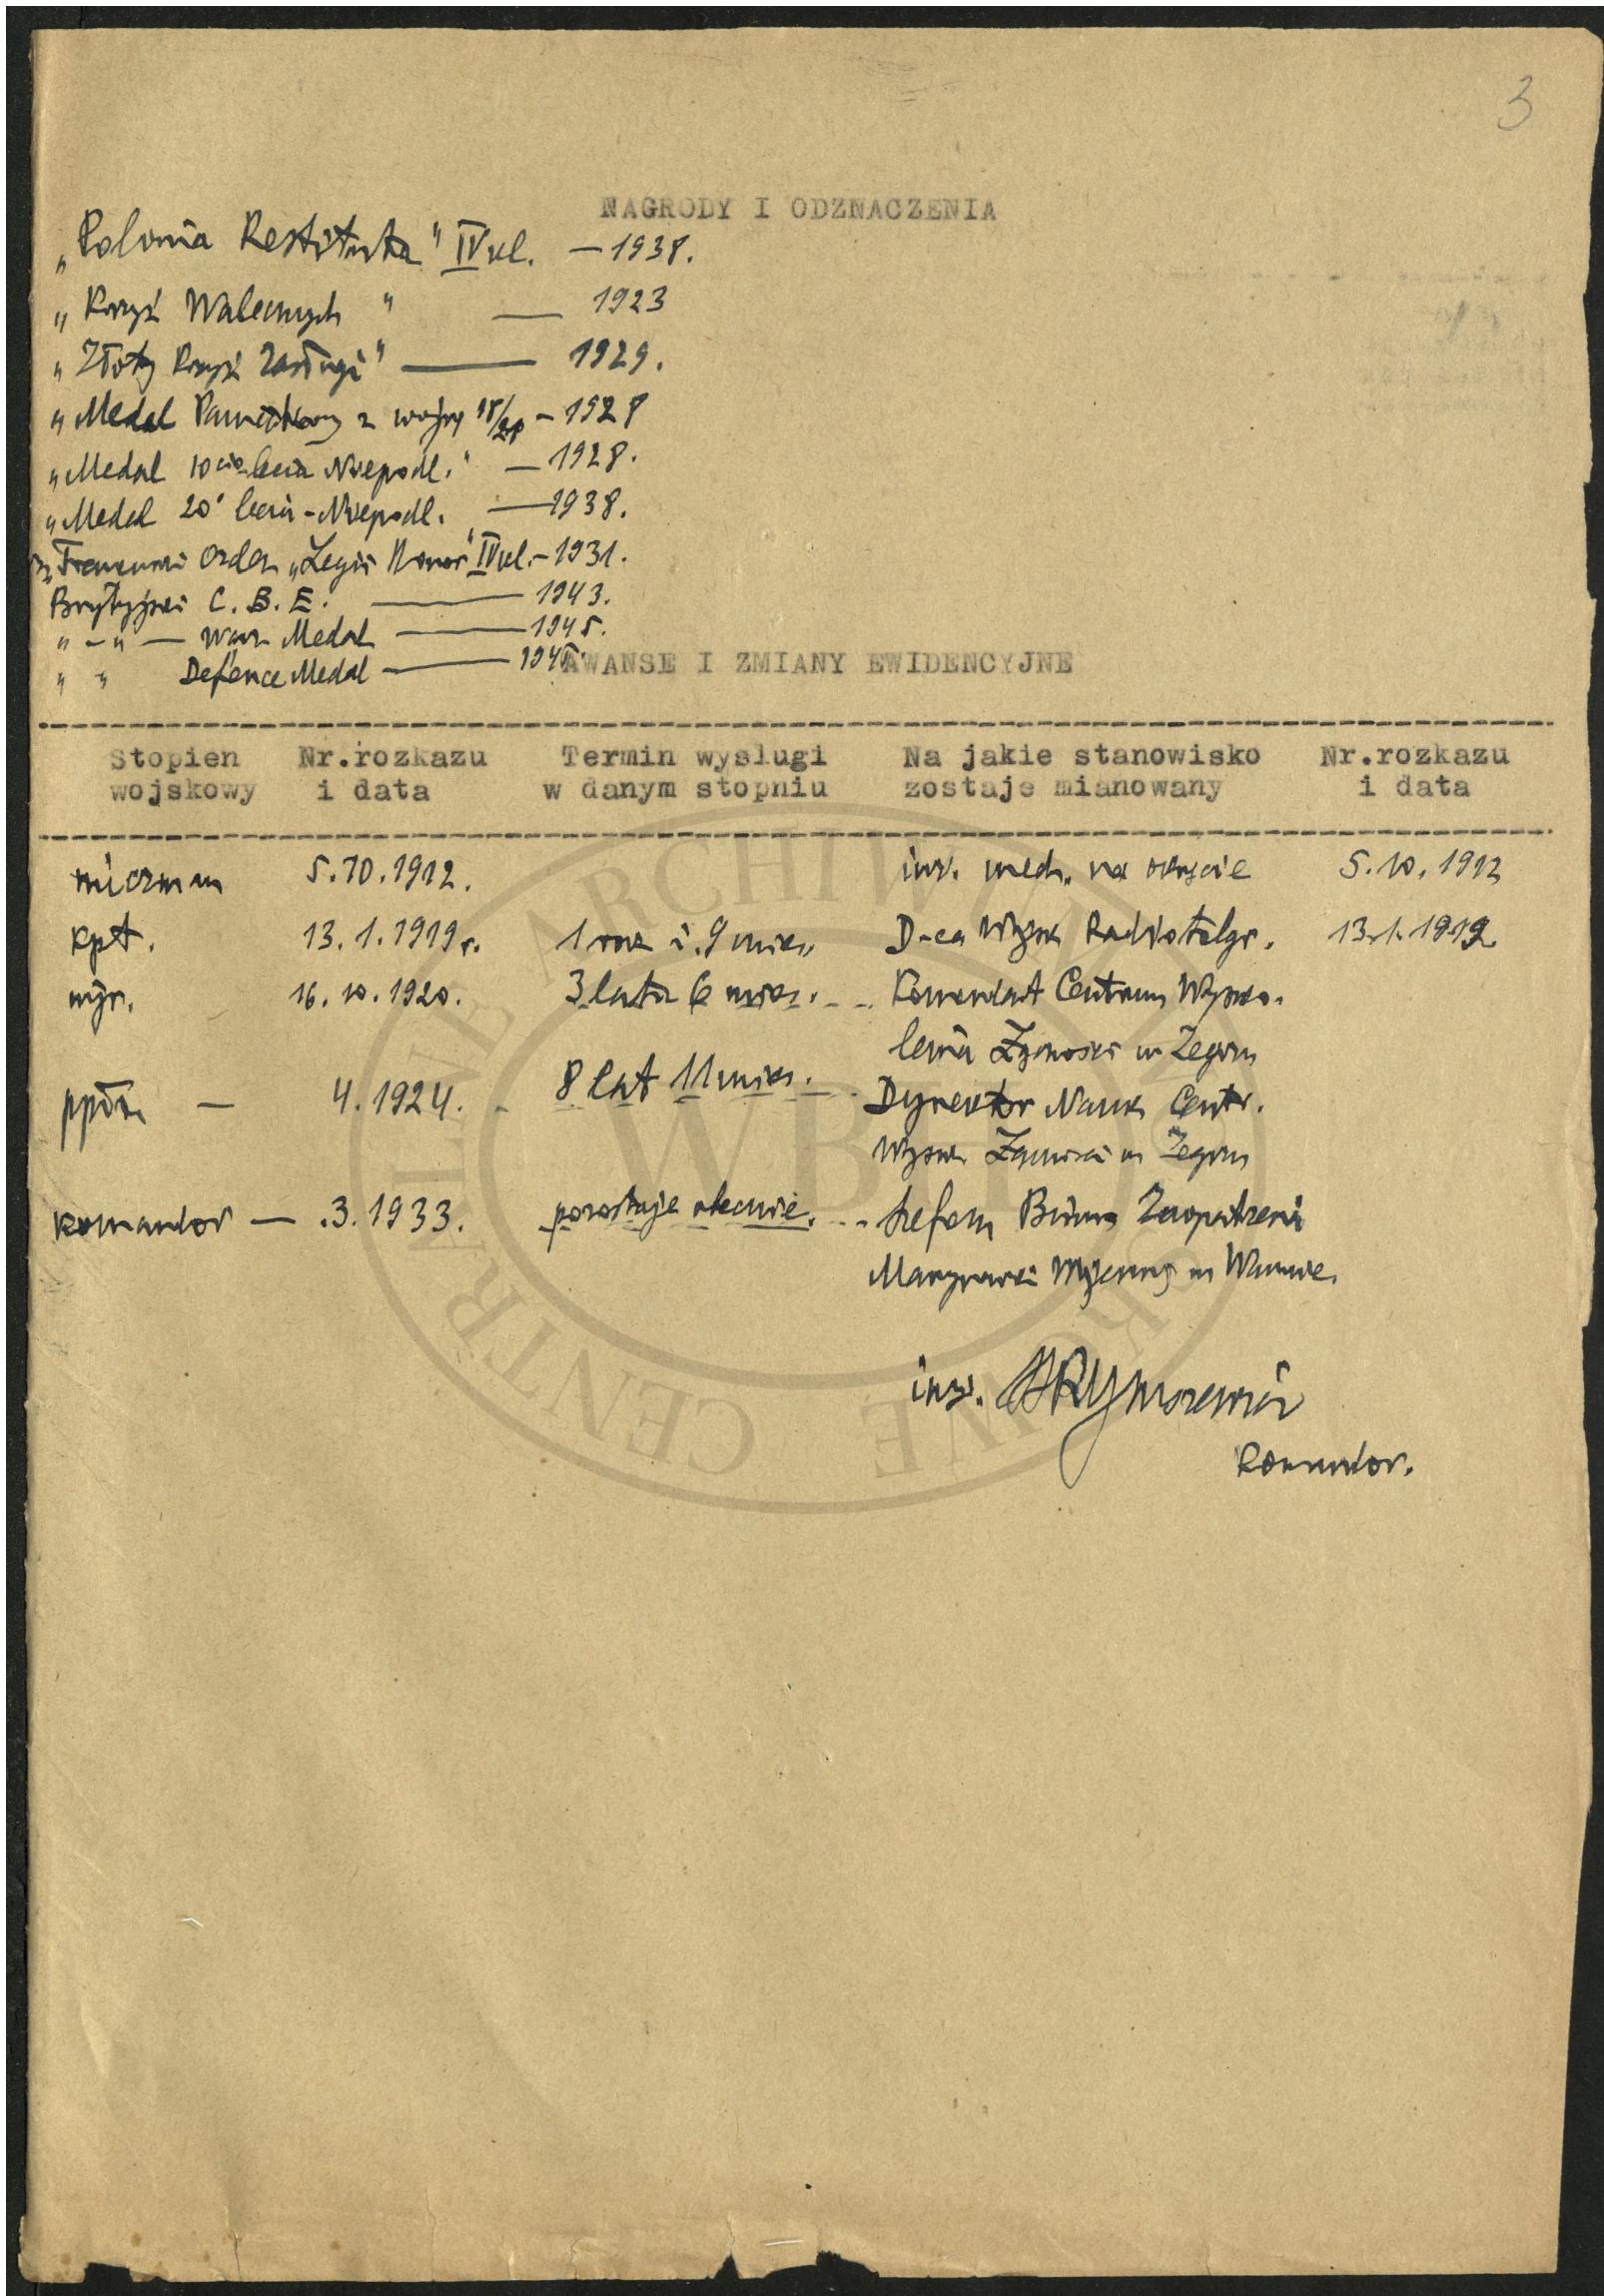 3
NAGRODY I ODZNACZENIA
„Polonia Restituta" IV kl. — 1938.
„Krzyż Walecznych" — 1923
„Złoty Krzyż Zasługi" — 1929.
„Medal Pamiątkowy z wojny 18/21 — 1928
„Medal 10cio lecia Niepodl." — 1928.
„Medal 20' lecia - Niepodl." — 1938.
Francuski Order „Legii Honor" IV kl. — 1931.
Brytyjski C. B. E. — 1943.
" — " — War Medal — 1945.
" " Defence Medal — 1945.
AWANSE I ZMIANY EWIDENCYJNE
Stopien Nr.rozkazu Termin wyslugi Na jakie stanowisko Nr.rozkazu
wojskowy i data w danym stopniu zostaje mianowany i data
miczman 5.10.1912. inż. mech. na okręcie 5.10.1912
kpt. 13.1.1919 r. 1 rok i 9 mies. D-ca Wyszk Radiotelgr. 13.1.1919.
mjr. 16.10.1920. 3 lata 6 mies. Komendant Centrum Wyszko-
lenia Łączności w Zegrzu
ppłk — 4.1924. 8 lat 11 mies. Dyrektor Nauk Centr.
Wyszk Łączności w Zegrzu
komandor — .3.1933. pozostaje obecnie. Szefem Biura Zaopatrzenia
Marynarki Wojennej w Warszawie.
inż. Rymszewicz
Komandor.
CENTRALNE ARCHIWUM WOJSKOWE
WBH